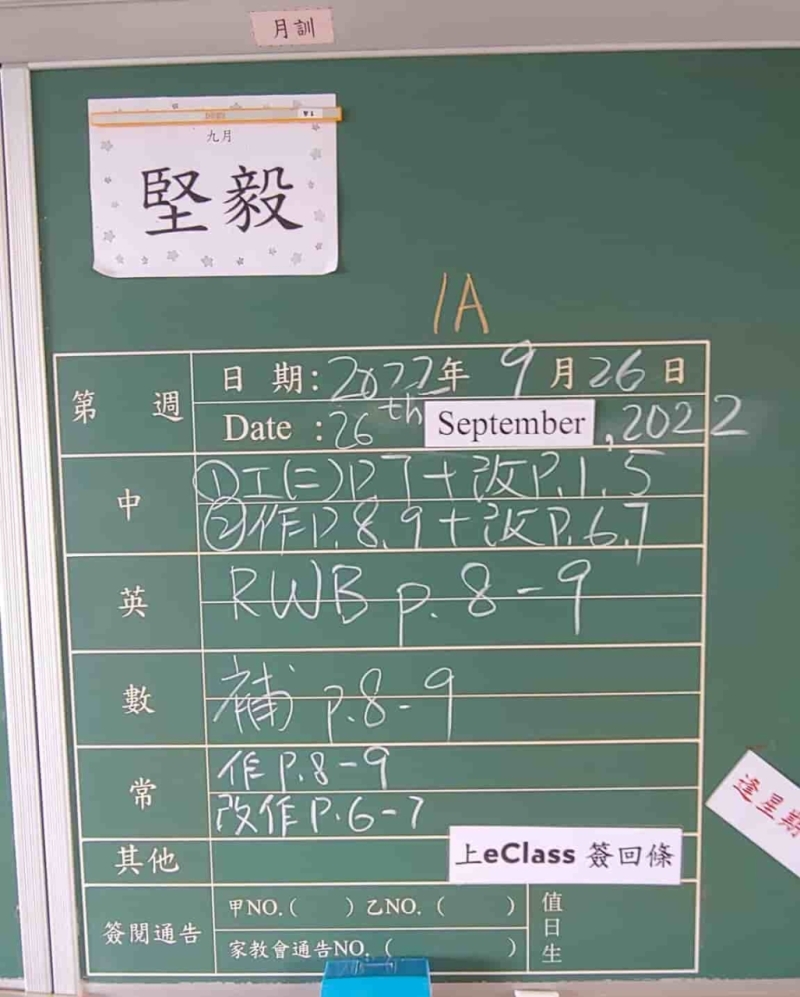 月訓
九月
堅毅
1A
第 週
日 期：2022年 9月26日
Date : 26th September, 2022
中
①工(二)P.7+改P.1.5
②作P.8.9+改P.6.7
英
RWB p.8-9
數
補 p.8-9
常
作P.8-9
改作P.6-7
其他
上eClass 簽回條
簽閱通告
甲NO.( ) 乙NO.( )
家教會通告NO.( )
值日生
逢星期